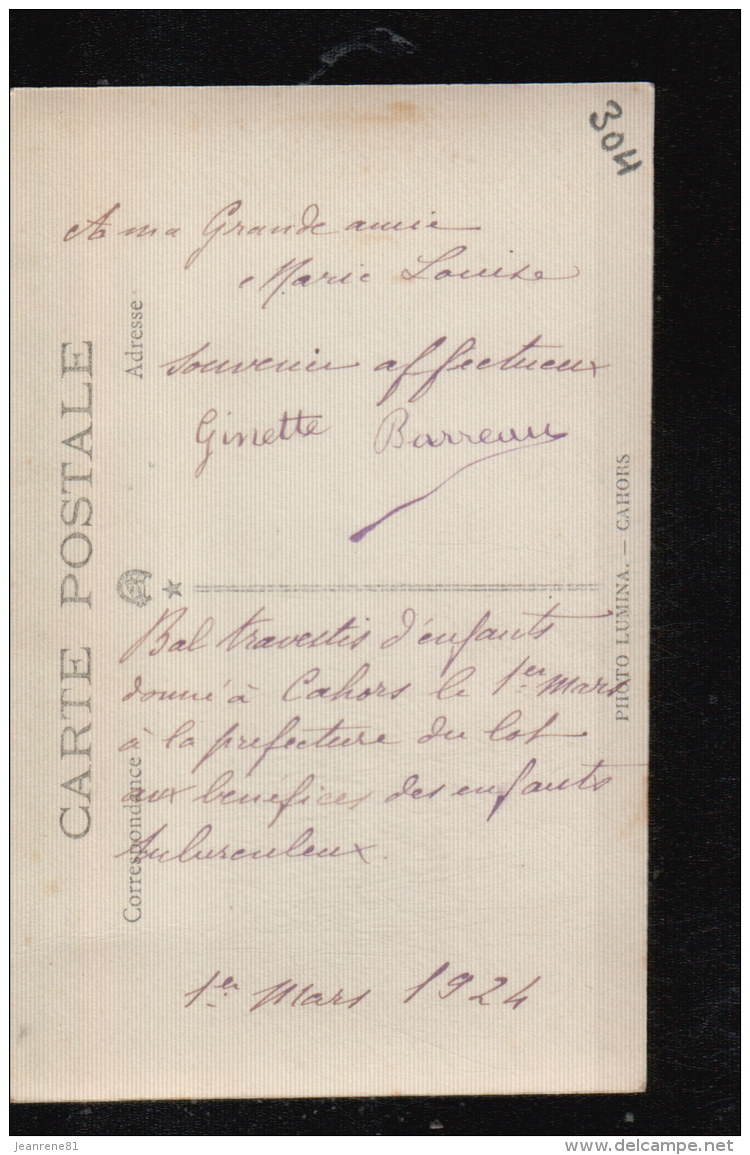 304
A ma Grande amie
Marie Louise
Souvenir affectueux
Ginette Barreau
CARTE POSTALE
Adresse
Correspondance
PHOTO LUMINA. — CAHORS
Bal travestis d'enfants
donné à Cahors le 1er Mars
à la prefecture du lot
aux bénéfices des enfants
tuberculeux.
1er Mars 1924
jeanrene81
www.delcampe.net